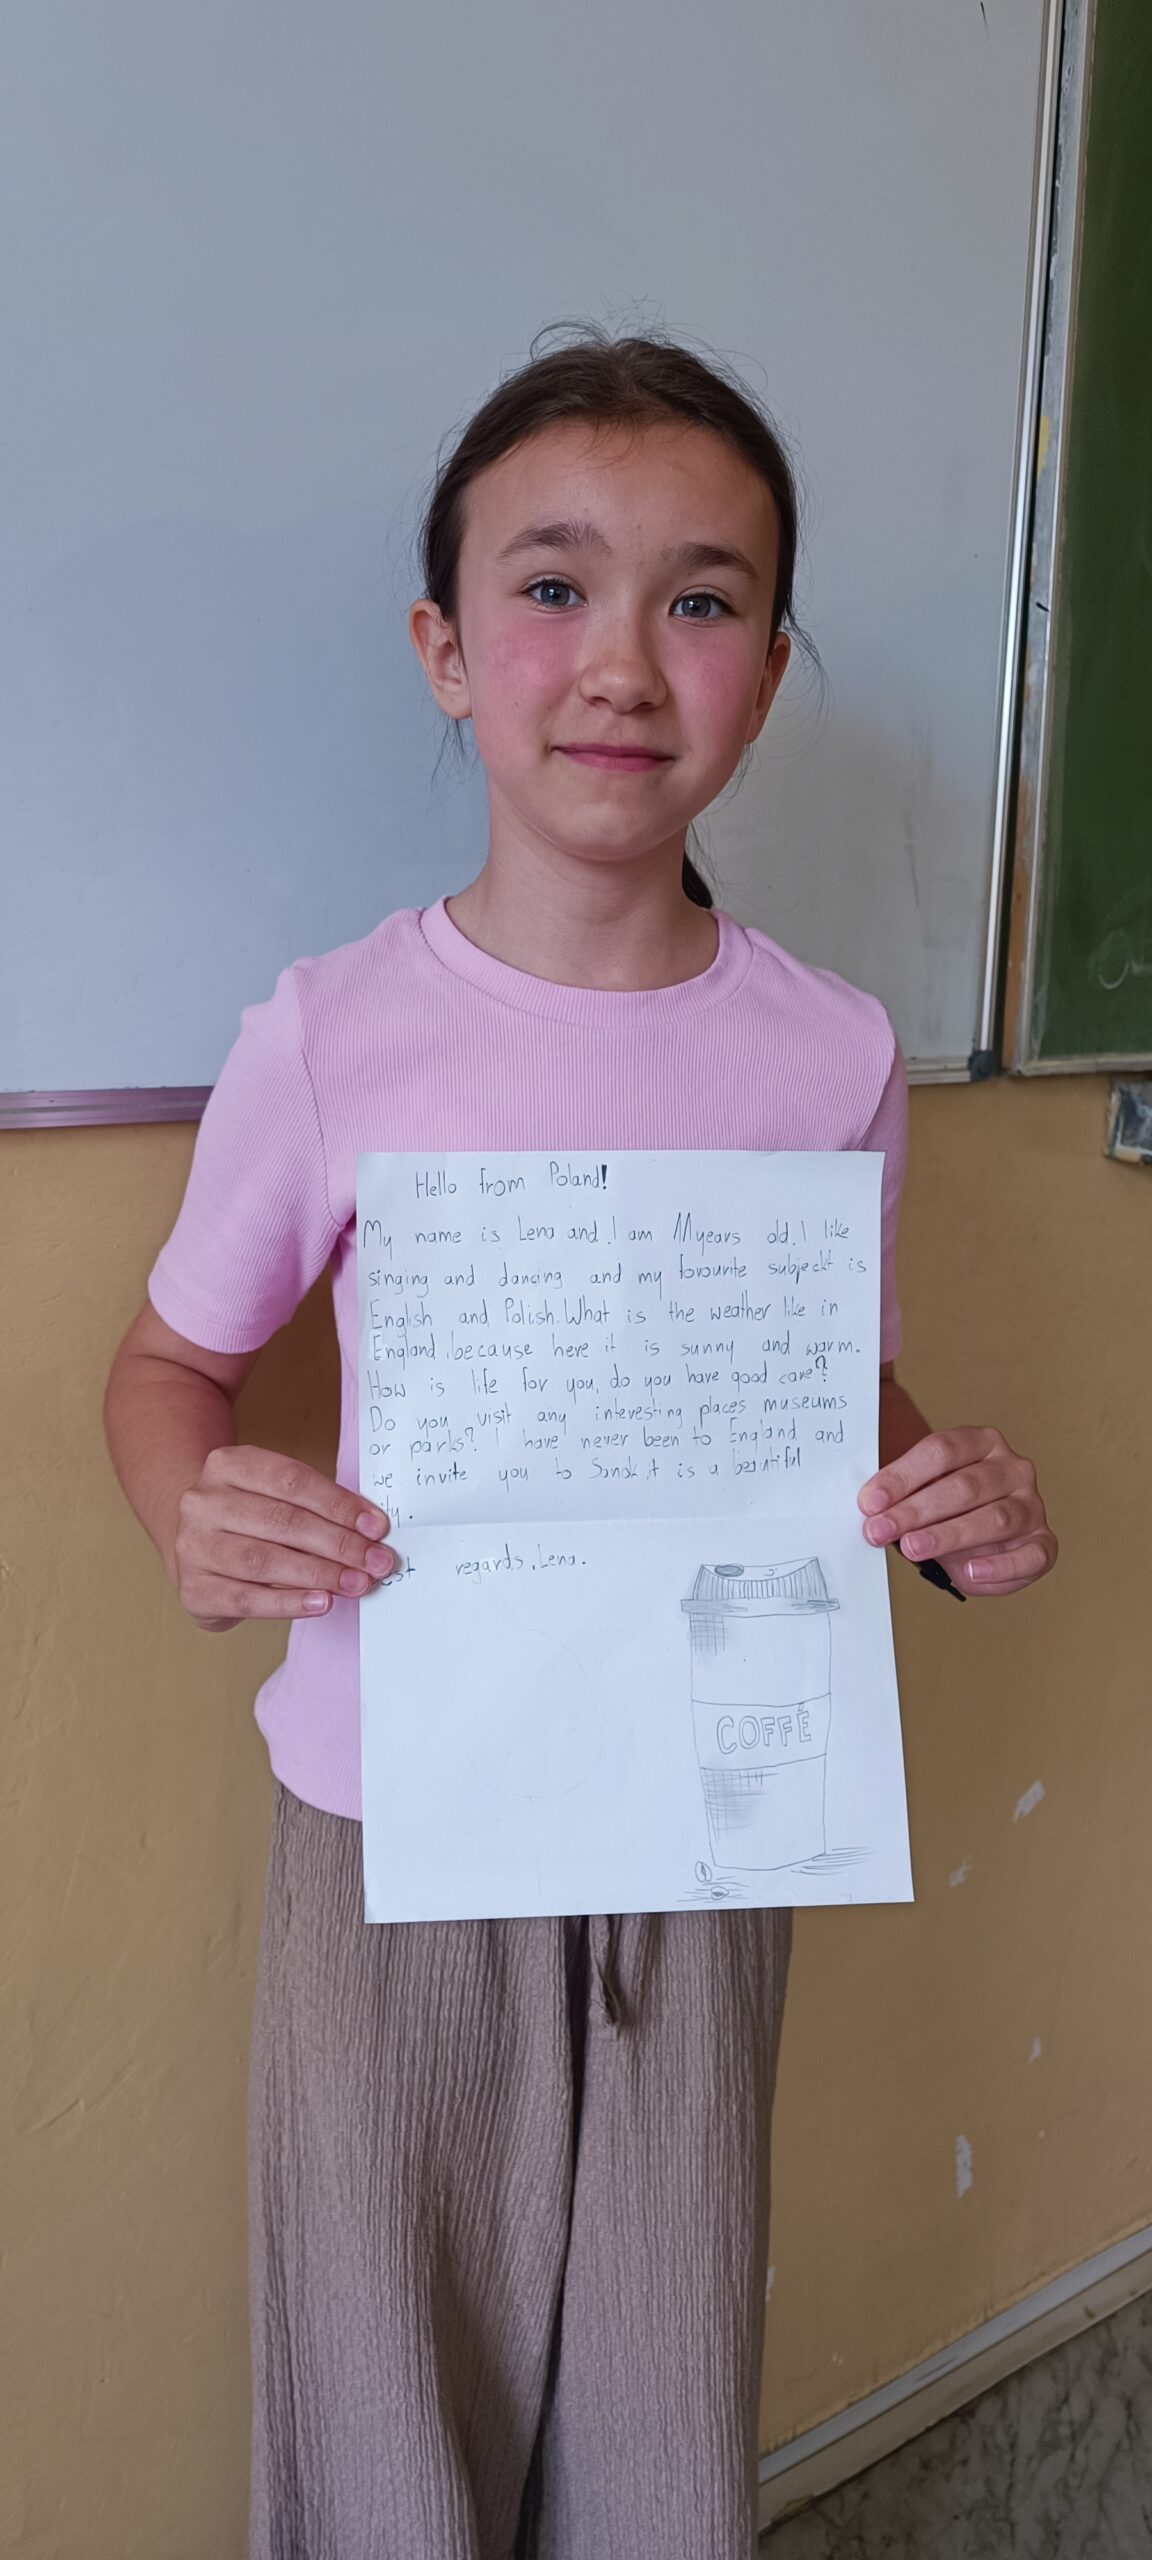 Hello from Poland!
My name is Lena and I am 11 years old. I like
singing and dancing and my favourite subjeckt is
English and Polish. What is the weather like in
England, because here it is sunny and warm.
How is life for you, do you have good care?
Do you visit any interesting places museums
or parks? I have never been to England and
we invite you to Sanok, it is a beautiful
ity.
est regards, Lena.
COFFÉ